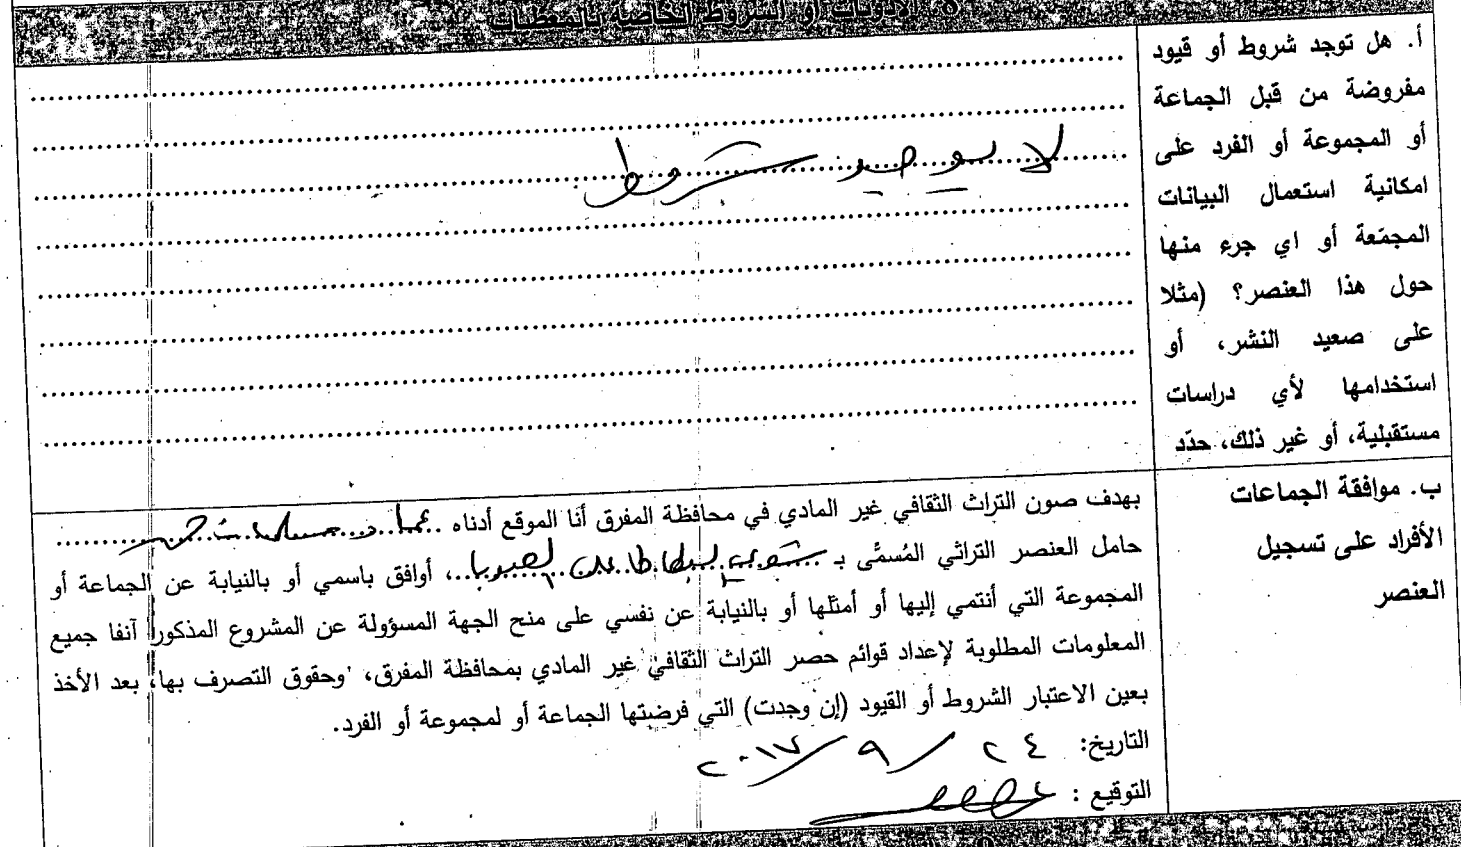 8 الأذونات أو الشروط الخاصة بالمعطيات
أ. هل توجد شروط أو قيود
مفروضة من قبل الجماعة
أو المجموعة أو الفرد على
امكانية استعمال البيانات
المجمّعة أو اي جرء منها
حول هذا العنصر؟ (مثلا
على صعيد النشر، أو
استخدامها لأي دراسات
مستقبلية، أو غير ذلك، حدّد
لا يوجد شروط
ب. موافقة الجماعات
الأفراد على تسجيل
العنصر
بهدف صون التراث الثقافي غير المادي في محافظة المفرق أنا الموقع أدناه
حامل العنصر التراثي المُسمَّى بـ ، أوافق باسمي أو بالنيابة عن الجماعة أو
المجموعة التي أنتمي إليها أو أمثلها أو بالنيابة عن نفسي على منح الجهة المسؤولة عن المشروع المذكور آنفا جميع
المعلومات المطلوبة لإعداد قوائم حصر التراث الثقافي غير المادي بمحافظة المفرق، وحقوق التصرف بها، بعد الأخذ
بعين الاعتبار الشروط أو القيود (إن وجدت) التي فرضتها الجماعة أو لمجموعة أو الفرد.
التاريخ: ٢٤ / ٩ / ٢٠١٧
التوقيع :